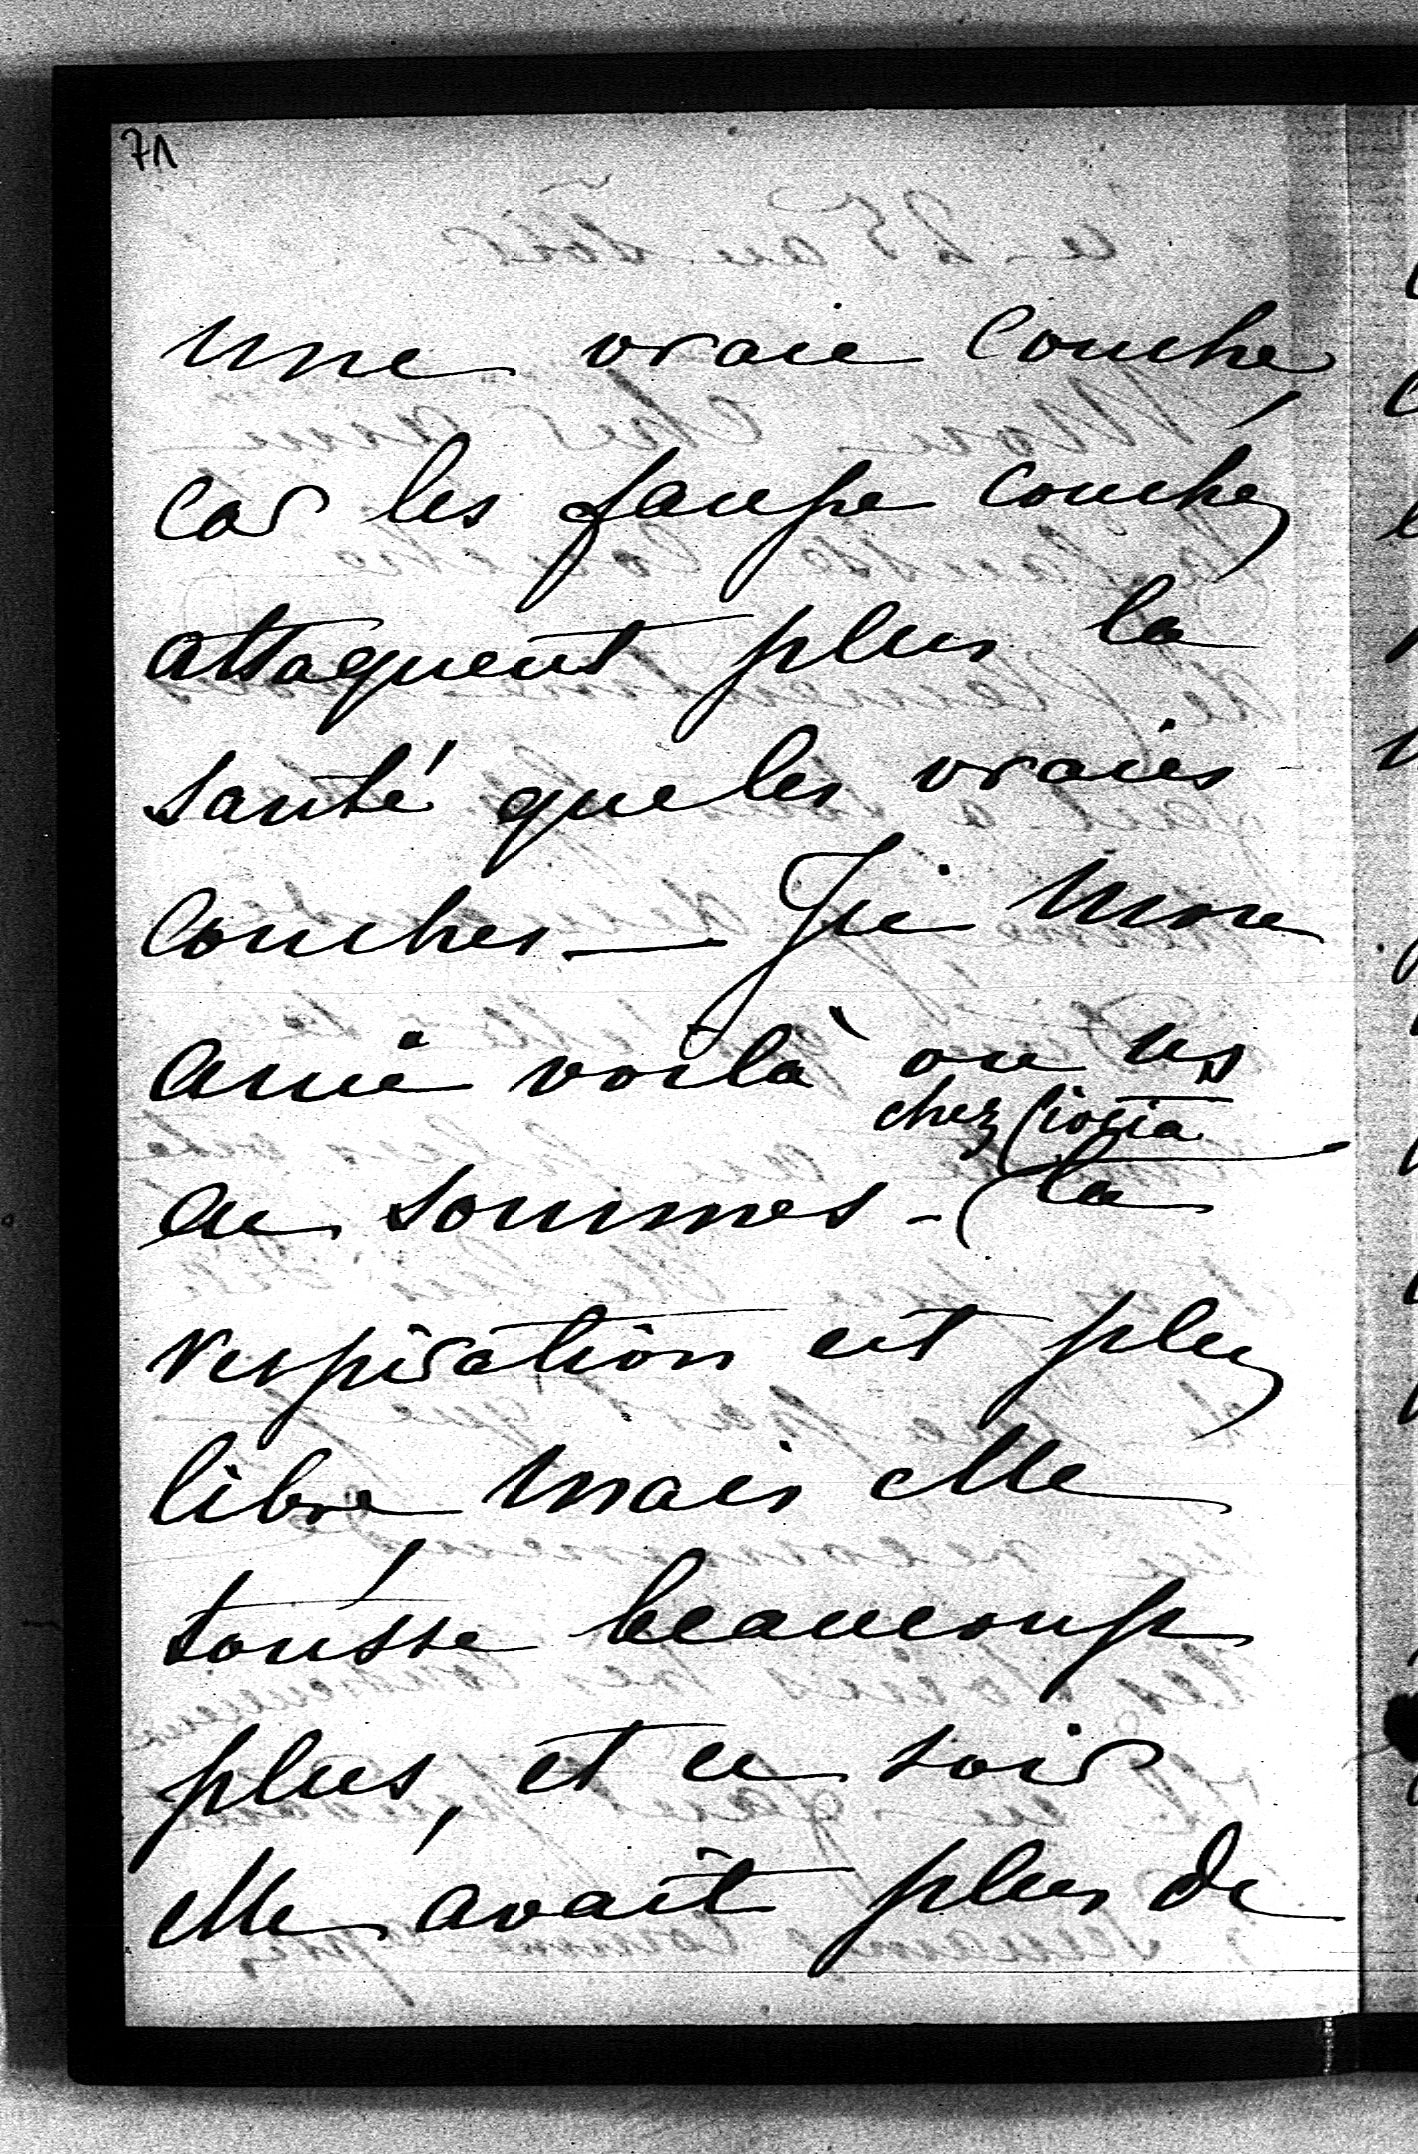 71
une vraie couche,
car les fausse couches
attaquent plus la
santé que les vraies
couches — Ici mon
amie voilà ou ns
chez Ciocia
en sommes - (la
respiration est plus
libre mais elle
tousse beaucoup
plus, et ce soir
elle avait plus de